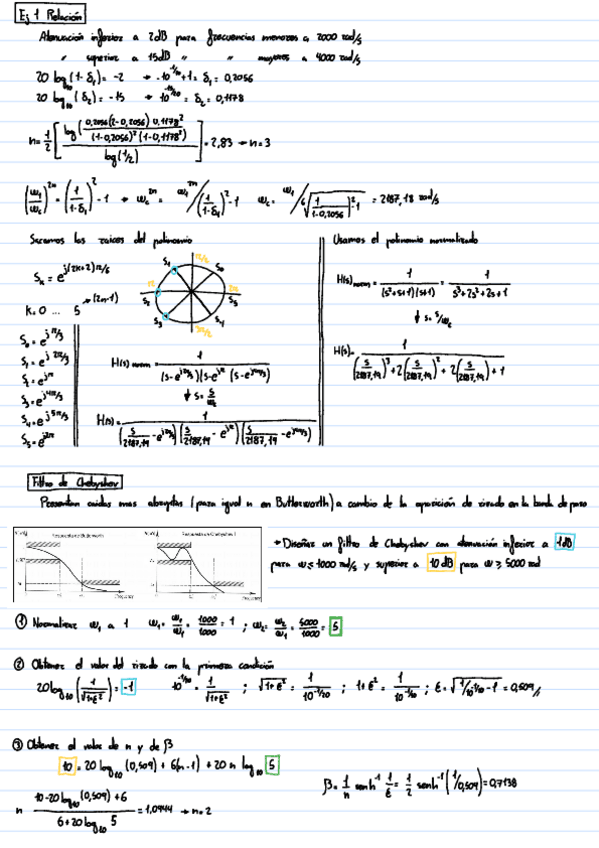 Ej 1 Relación
Atenuación inferior a 2dB para frecuencias menores a 2000 rad/s
" superior a 15dB " " mayores a 4000 rad/s
20 log₁₀(1-δ₁) = -2 → -10^(-1/10)+1 = δ₁ = 0,2056
20 log₁₀(δ₂) = -15 → 10^(-15/20) = δ₂ = 0,1178
n = 1/2 [ log( 0,2056(2-0,2056) 0,1178² / (1-0,2056)² (1-0,1178²) ) / log(1/2) ] = 2,83 → n=3
(ω₁/ωc)^2n = (1/1-δ₁)² - 1 → ωc^2n = ω₁^2n / (1/1-δ₁)² - 1 ωc = ω₁ / ⁶√(1/1-0,2056)² - 1 = 2187,18 rad/s
Sacamos las raices del polinomio
Sₖ = e^(j(2k+2)π/6)
k = 0 ... 5 → (2n-1)
S₀ = e^(jπ/3)
S₁ = e^(j2π/3)
S₂ = e^(jπ)
S₃ = e^(j4π/3)
S₄ = e^(j5π/3)
S₅ = e^(j2π)
S₁ π/2 S₀
π S₂ 2π S₅
S₃ 3π/2 S₄
H(s)norm = 1 / (s-e^(j2π/3))(s-e^(jπ))(s-e^(j4π/3))
↓ s = s/ωc
H(s) = 1 / (s/2187,19 - e^(j2π/3))(s/2187,19 - e^(jπ))(s/2187,19 - e^(j4π/3))
Usamos el polinomio normalizado
H(s)norm = 1 / (s²+s+1)(s+1) = 1 / s³+2s²+2s+1
↓ s = s/ωc
H(s) = 1 / (s/2187,19)³ + 2(s/2187,19)² + 2(s/2187,19) + 1
Filtro de Chebyshev
Presentan caidas mas abruptas (para igual n en Butterworth) a cambio de la aparición de rizado en la banda de paso
→ Diseñar un filtro de Chebyshev con atenuación inferior a 1dB
para ω ≤ 1000 rad/s y superior a 10 dB para ω ≥ 5000 rad
① Normalizar ω₁ a 1 ω₁ = ω₁/ω₁ = 1000/1000 = 1 ; ω₂ = ω₂/ω₁ = 5000/1000 = 5
② Obtener el valor del rizado con la primera condición
20 log₁₀(1/√1+ε²) = -1 10^(-1/20) = 1/√1+ε² ; √1+ε² = 1/10^(-1/20) ; 1+ε² = 1/10^(-1/10) ; ε = √1/10^(-1/10) - 1 = 0,509
③ Obtener el valor de n y de β
10 = 20 log₁₀(0,509) + 6(n-1) + 20 n log₁₀ 5
n 10-20 log₁₀(0,509)+6 / 6+20 log₁₀ 5 = 1,0944 → n=2
β = 1/n senh⁻¹ 1/ε = 1/2 senh⁻¹(1/0,509) = 0,7138